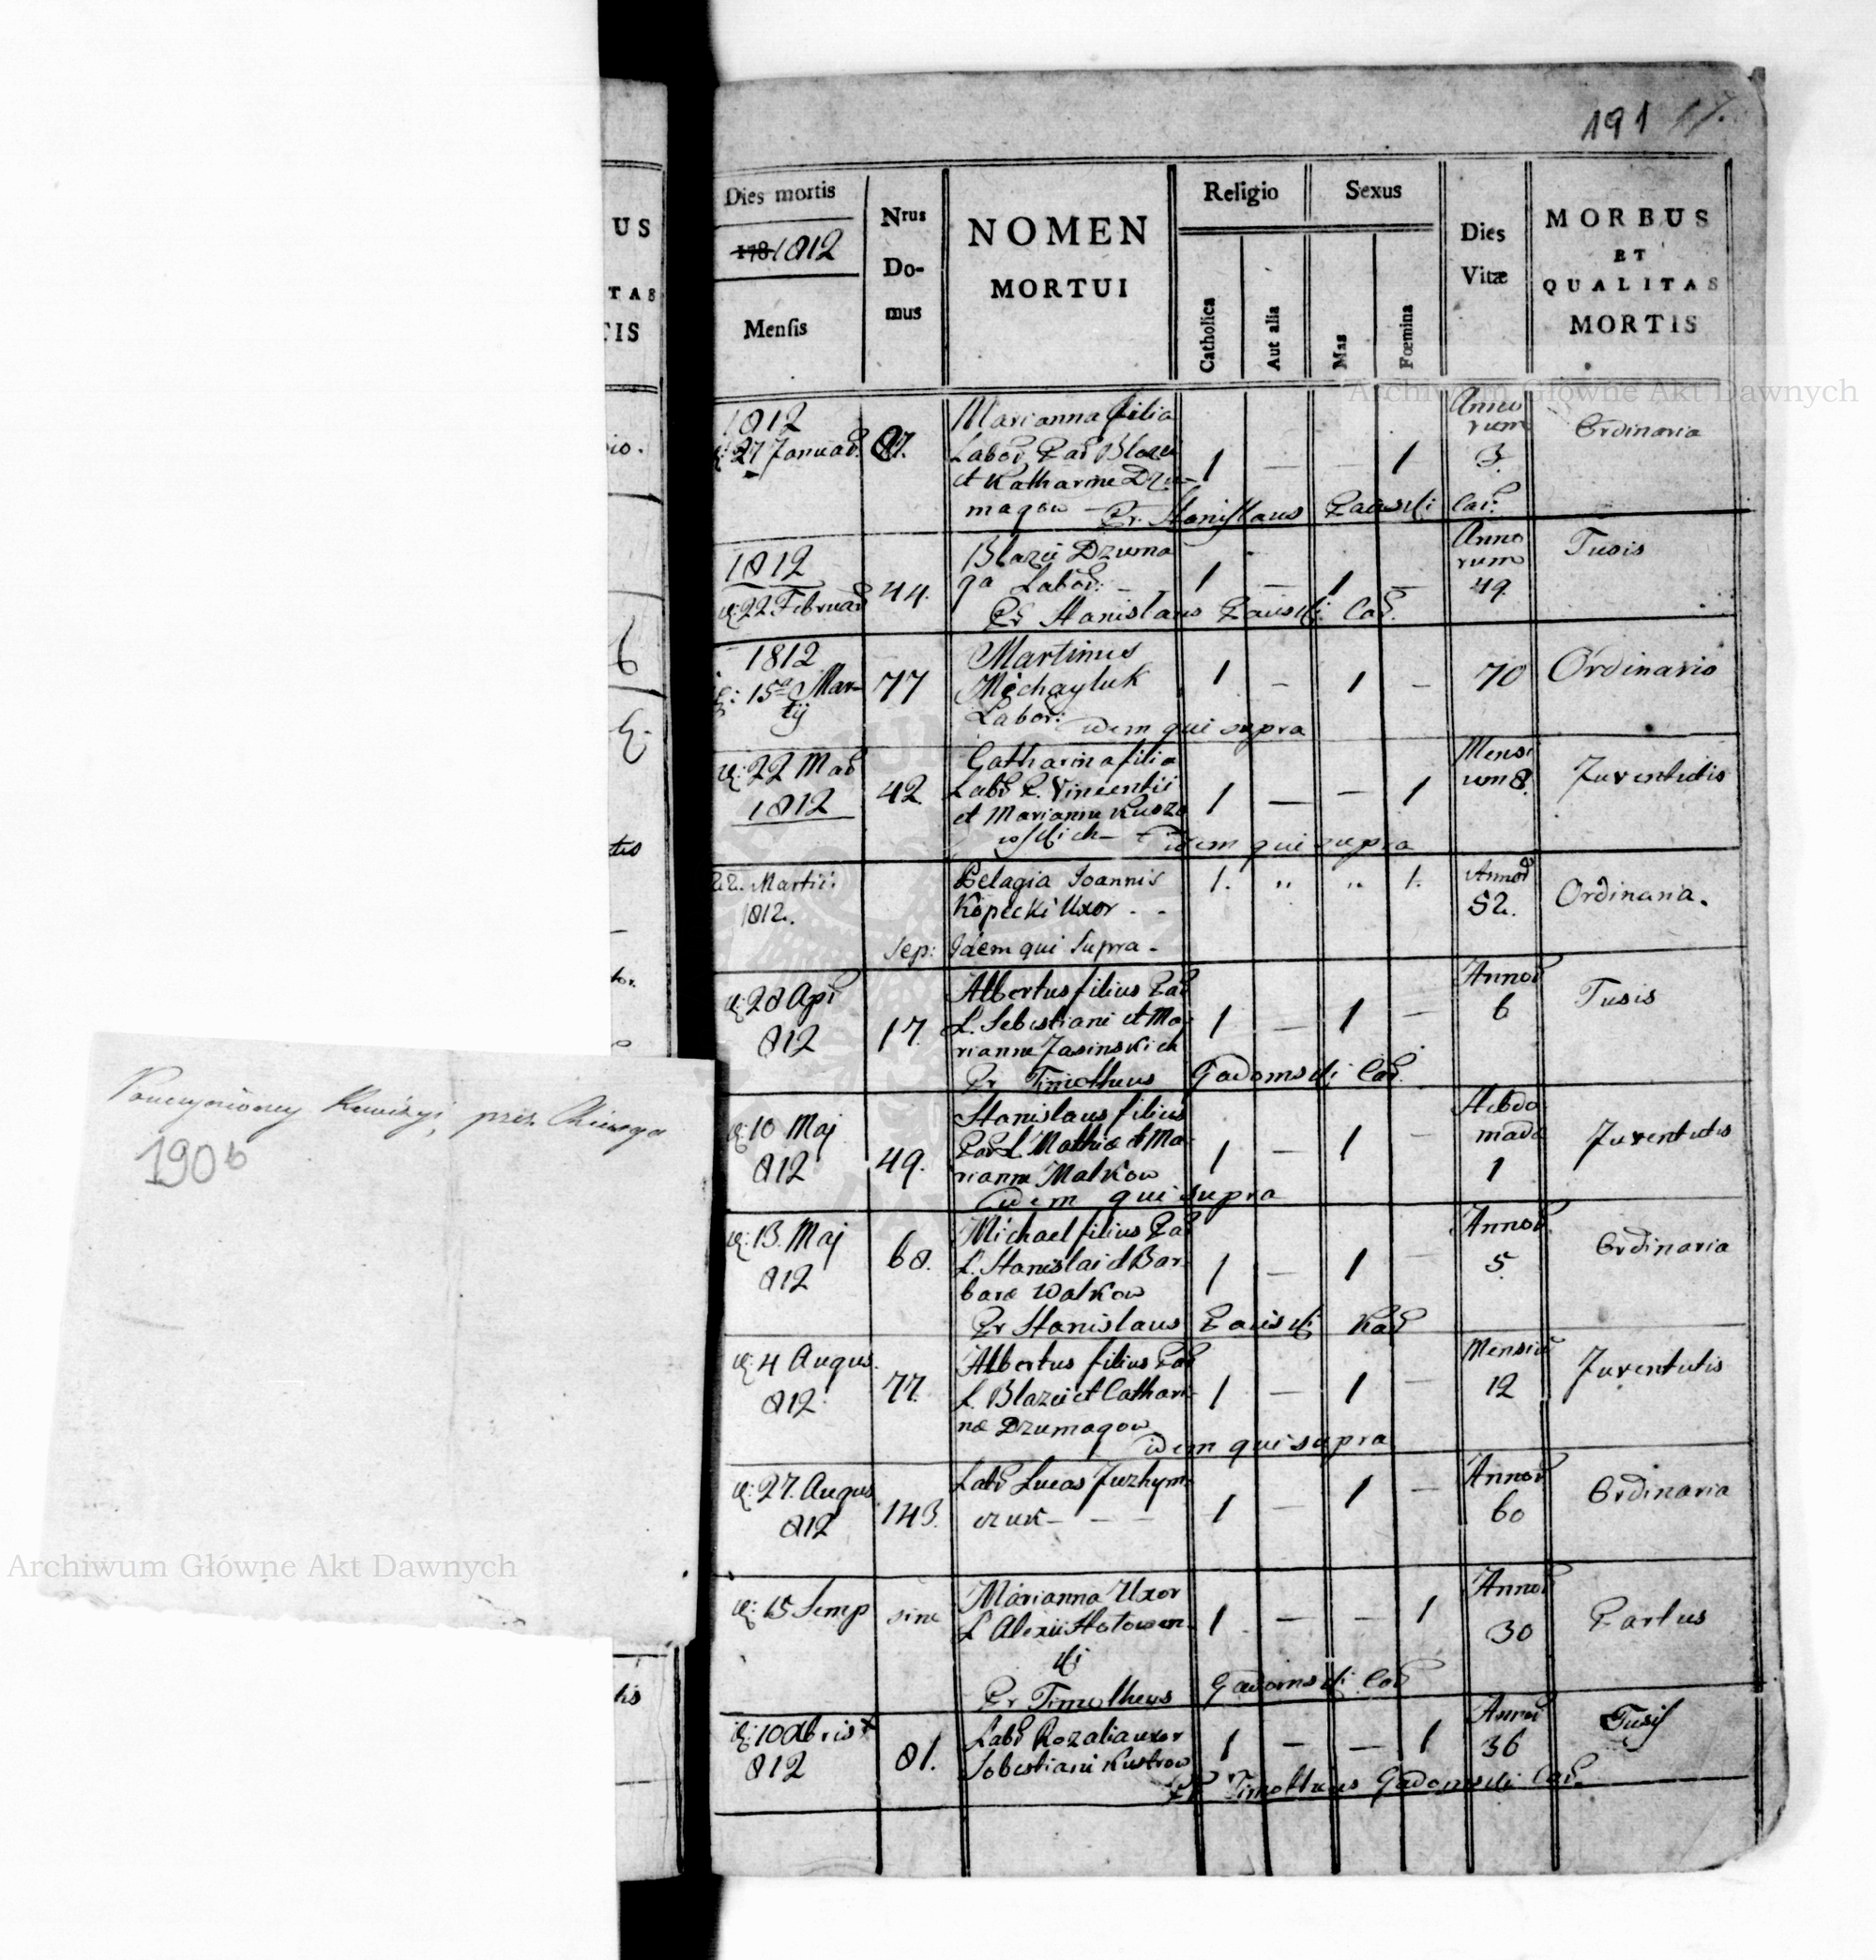 191 17.
Dies mortis
1781812
Mensis
Nrus
Do-
mus
NOMEN
MORTUI
Religio
Catholica
Aut alia
Sexus
Mas
Fœmina
Dies
Vitæ
MORBUS
ET
QUALITAS
MORTIS
1812
27 Januar.
87.
Marianna filia
Labor Blazei
et Katharine Dzu-
magow
1 — — 1
Anno
rum
3
Ordinaria
Pr. Stanislaus
1812
d: 22 Februar
44.
Blazei Dzuma
ga Labor:
1 — 1 —
Anno
rum
49
Tusis
Pr Stanislaus
1812
d: 15a Mar-
tij
77
Martinus
Michayluk
Labor:
1 — 1 —
70
Ordinario
idem qui supra
d: 22 Mar
1812
42.
Catharina filia
Lab: Vincentii
et Marianne Kuszo
wskich
1 — — 1
Mensi
um 8.
Juventutis
idem qui supra
22. Martii:
1812.
Pelagia Joannis
Kopecki Uxor - -
1. „ „ 1.
Annor
52.
Ordinaria.
Sep: Idem qui supra -
d: 28 Apr
812
17.
Albertus filius
L. Sebestiani et Ma
rianne Jasinskich
1 — 1 —
Annor
6
Tusis
Pr Timotheus Gadomski
d: 10 Maj
812
49.
Stanislaus filius
L. Mathiæ et Ma
rianna Malkow
1 — 1 —
Hebdo
mada
1
Juventutis
idem qui supra
d: 13. Maj
812
68.
Michael filius
L. Stanislai et Bar
baræ Walkow
1 — 1 —
Annor.
5.
Ordinaria
Pr Stanislaus
d: 4 Augus.
812
77.
Albertus filius
L. Blazei et Cathari
næ Dzumagow
1 — 1 —
Mensiu
12
Juventutis
idem qui supra
d: 27. Augus
812
143.
Lab Lucas
czuk — — —
1 — 1 —
Annor
60
Ordinaria
d: 15 Semp
sine
Marianna Uxor
L Alexii
ski
1 — — 1
Annor
30
Partus
Pr Timotheus Gadomski
d: 10 Xbris
812
81.
Lab Rozalia uxor
Sobestiani Kustrow
1 — — 1
Annor
36
Tusis
Pr Timotheus Gadomski
190b
US
TAS
TIS
Archiwum Główne Akt Dawnych
Archiwum Główne Akt Dawnych